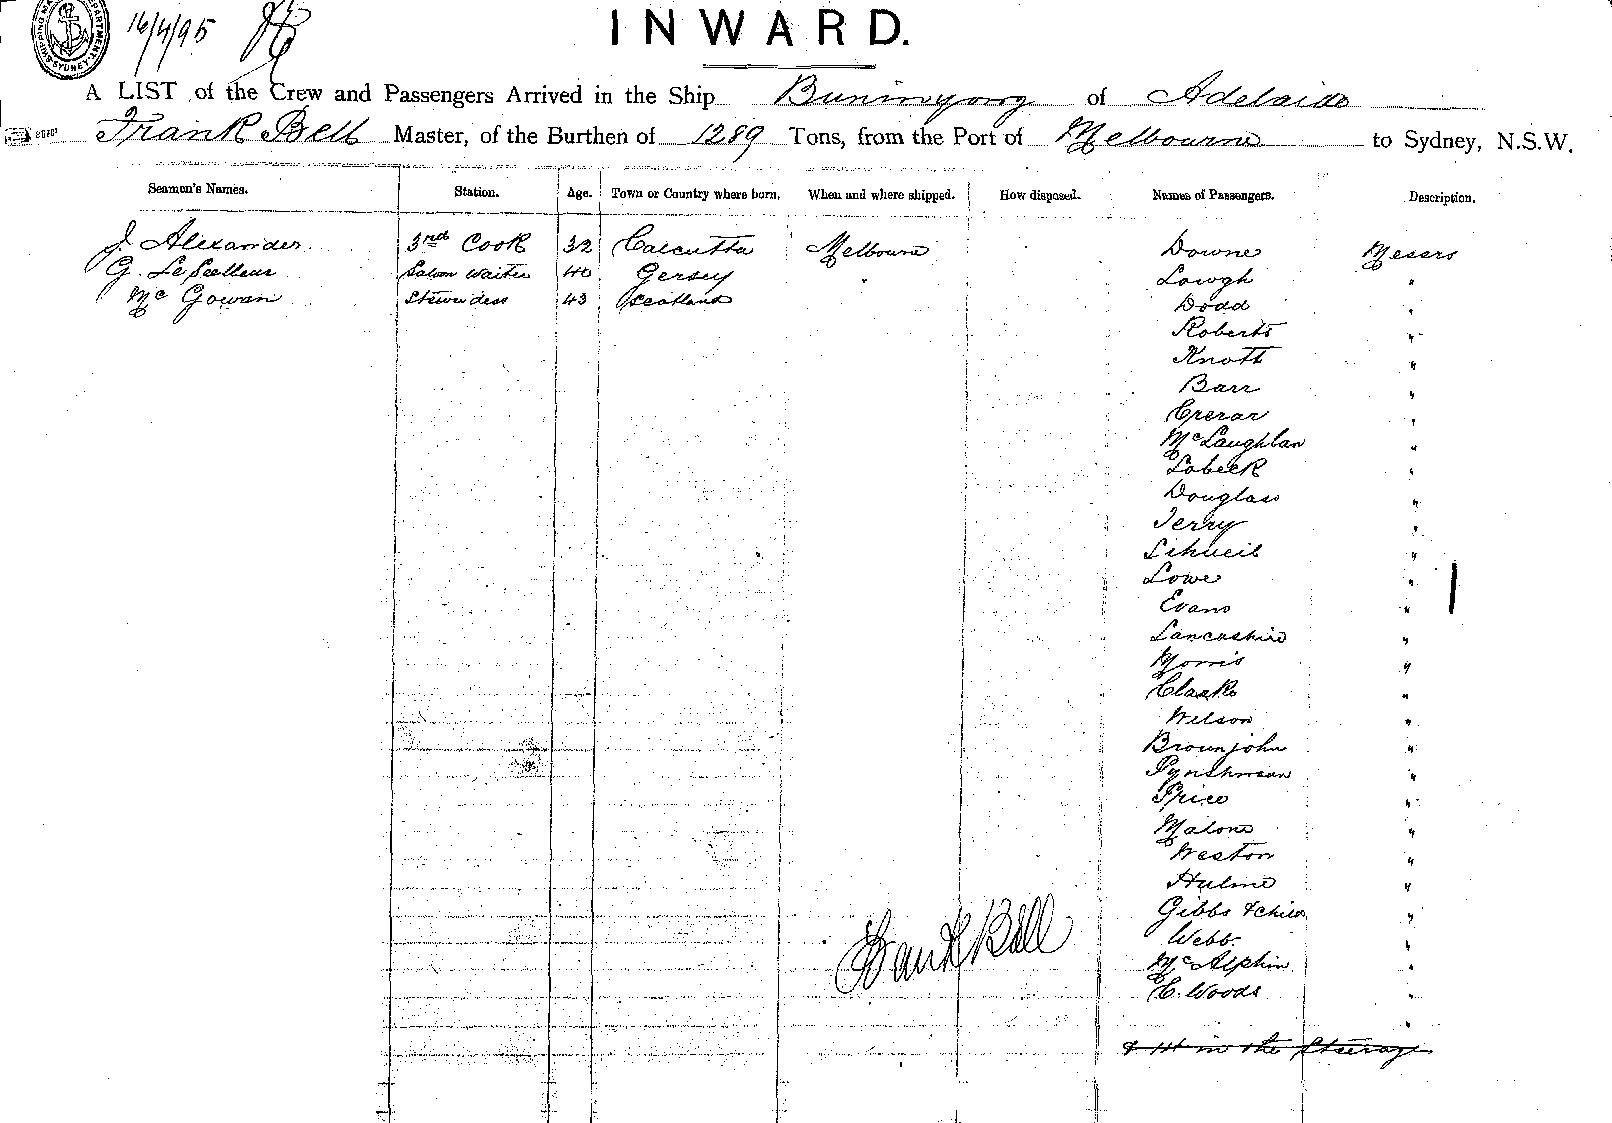 16/4/95
INWARD.
A LIST of the Crew and Passengers Arrived in the Ship Buninyong of Adelaide
Frank Bell Master, of the Burthen of 1289 Tons, from the Port of Melbourne to Sydney, N.S.W.
Seamen's Names. Station. Age. Town or Country where born. When and where shipped. How disposed. Names of Passengers. Description.
J. Alexander 3rd Cook 32 Calcutta Melbourne Downe Messrs
G. Saloon Waiter 40 Gersey Lowgh "
Mc Gowan Stewardess 43 Scotland Dodd "
Roberts "
Knott "
Barr "
Crerar "
McLaughlan "
Lobeck "
Douglass "
Terry "
"
Lowe "
Evans "
Lancashire "
Morris "
Clarke "
Wilson "
Brownjohn "
"
Price "
Malone "
Weston "
Hulme "
Gibbs & child "
Webb. "
McAlphin "
C. Woods "
"
in the Steerage
Frank Bell